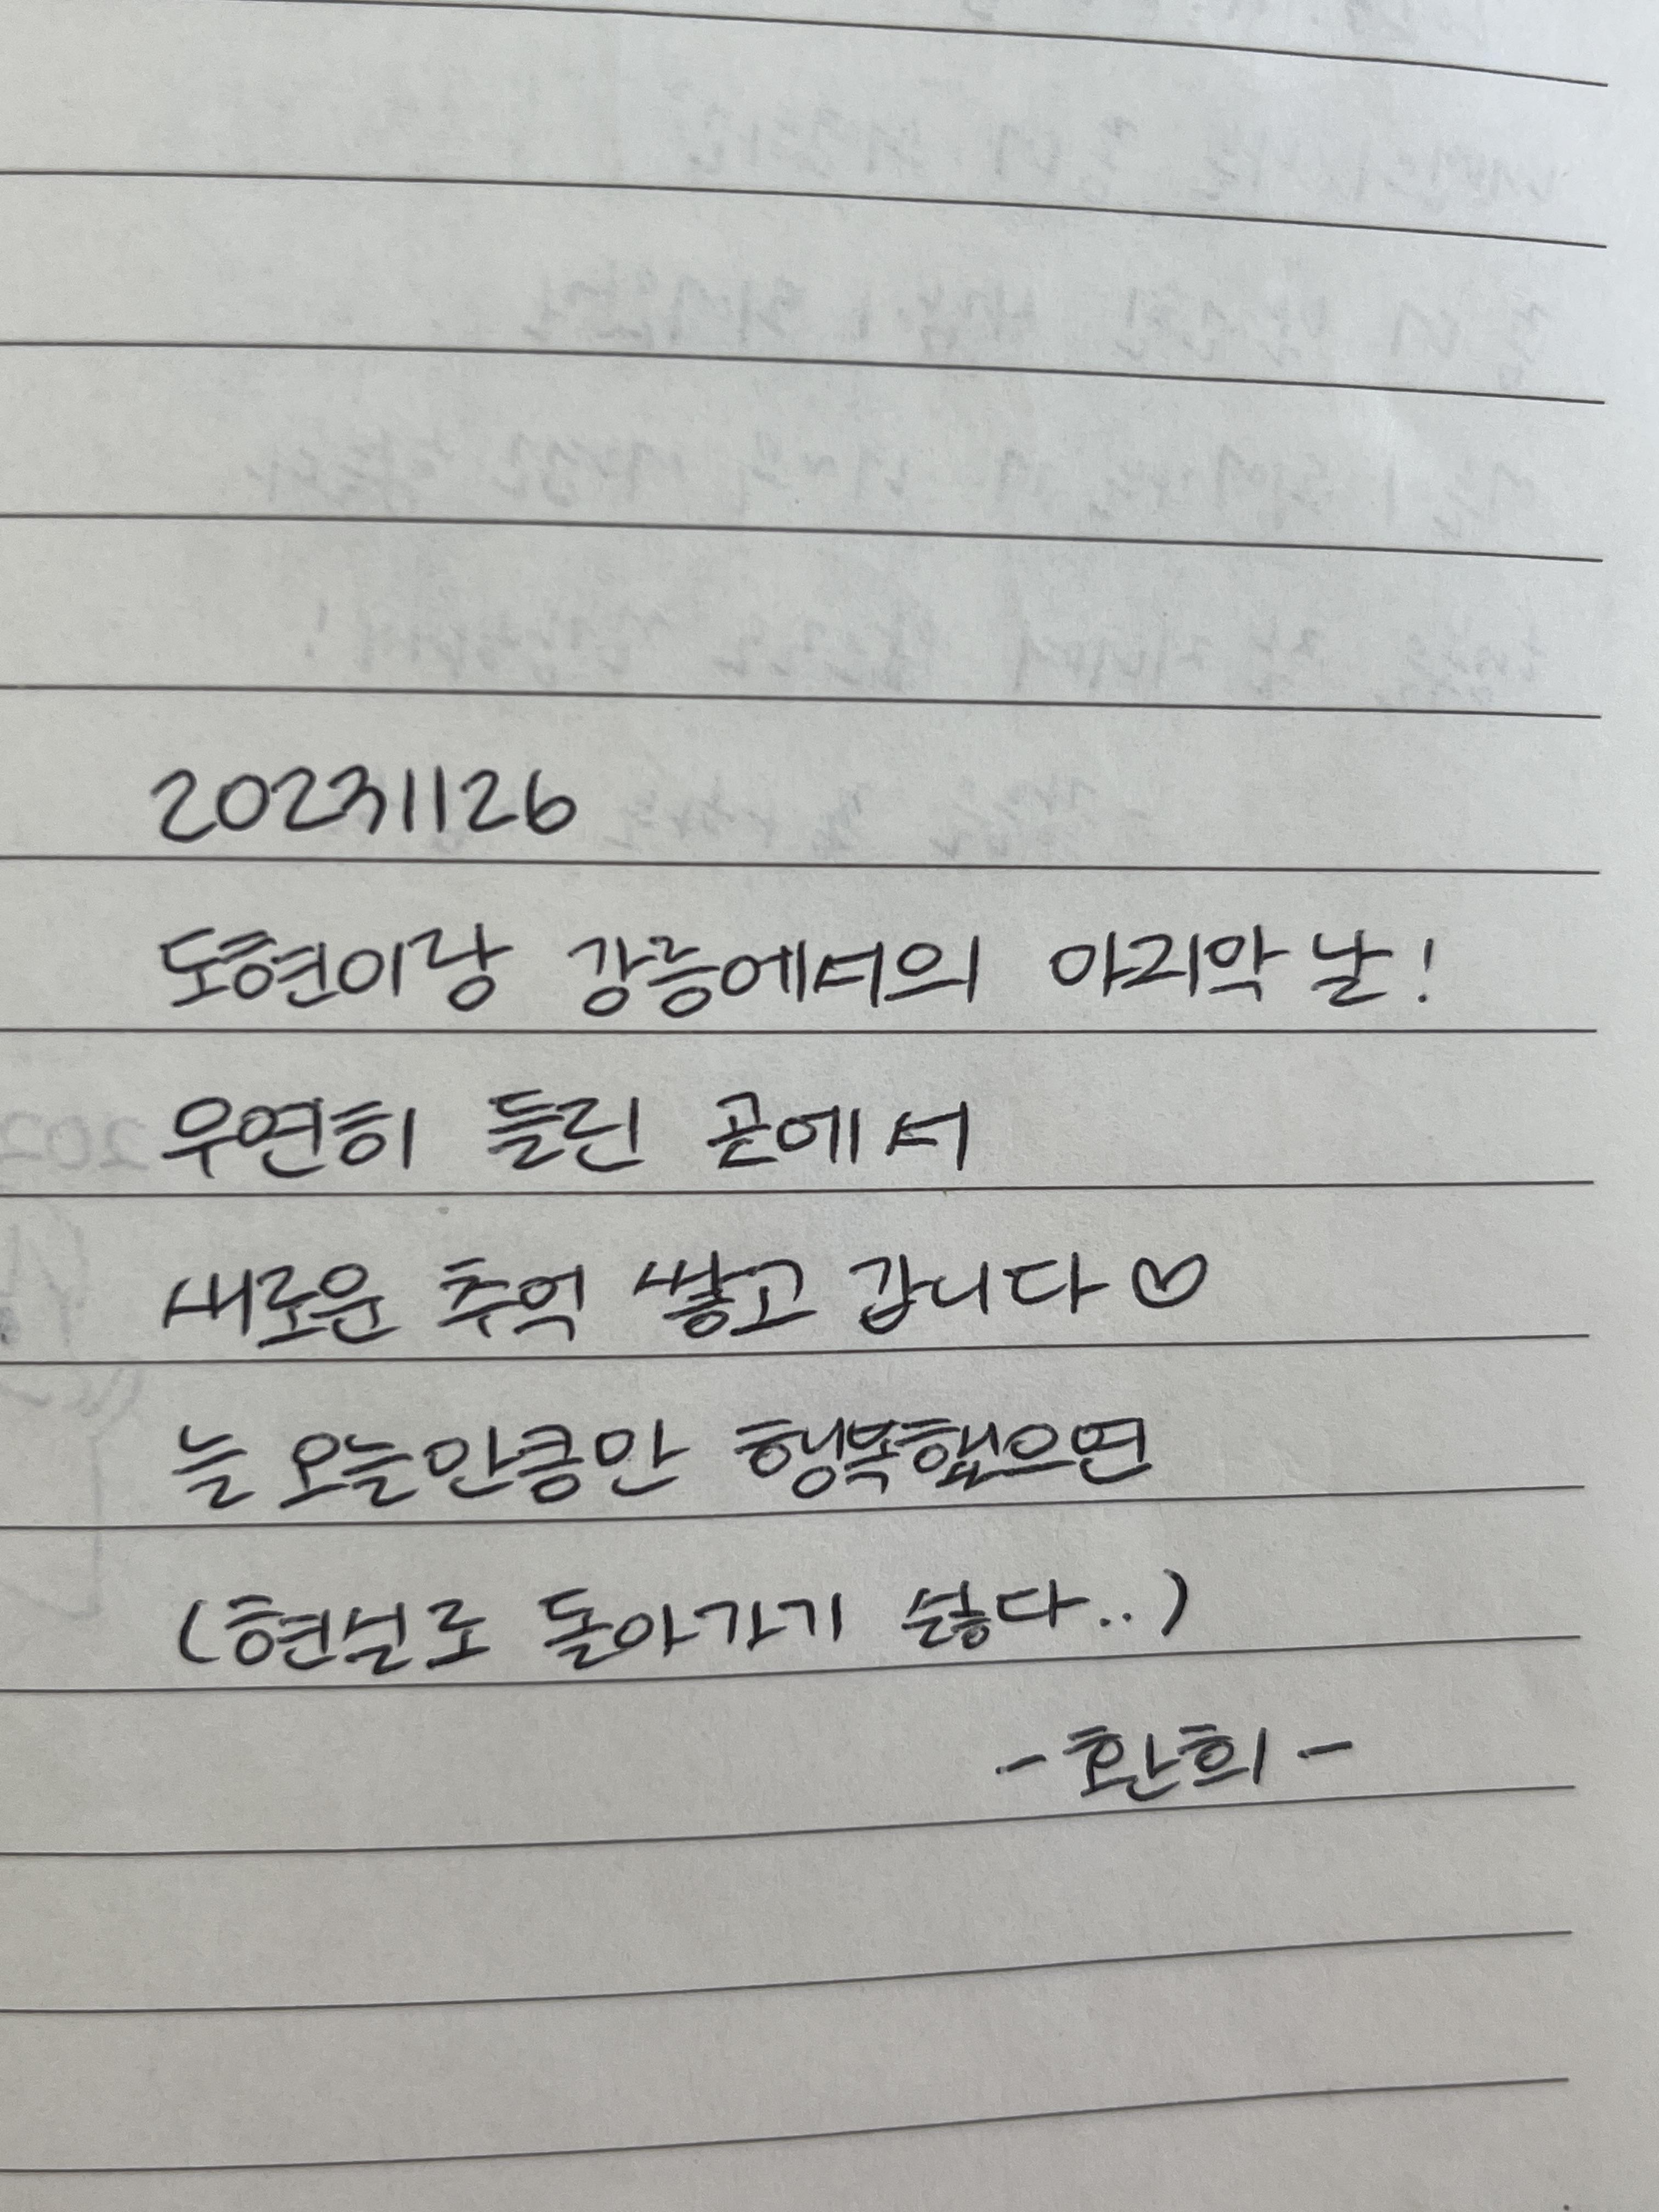 20231126
도현이랑 강릉에서의 마지막 날!
우연히 들린 곳에서
새로운 추억 쌓고 갑니다♡
늘 오늘만큼만 행복했으면
(현실로 돌아가기 싫다..)
-환희-